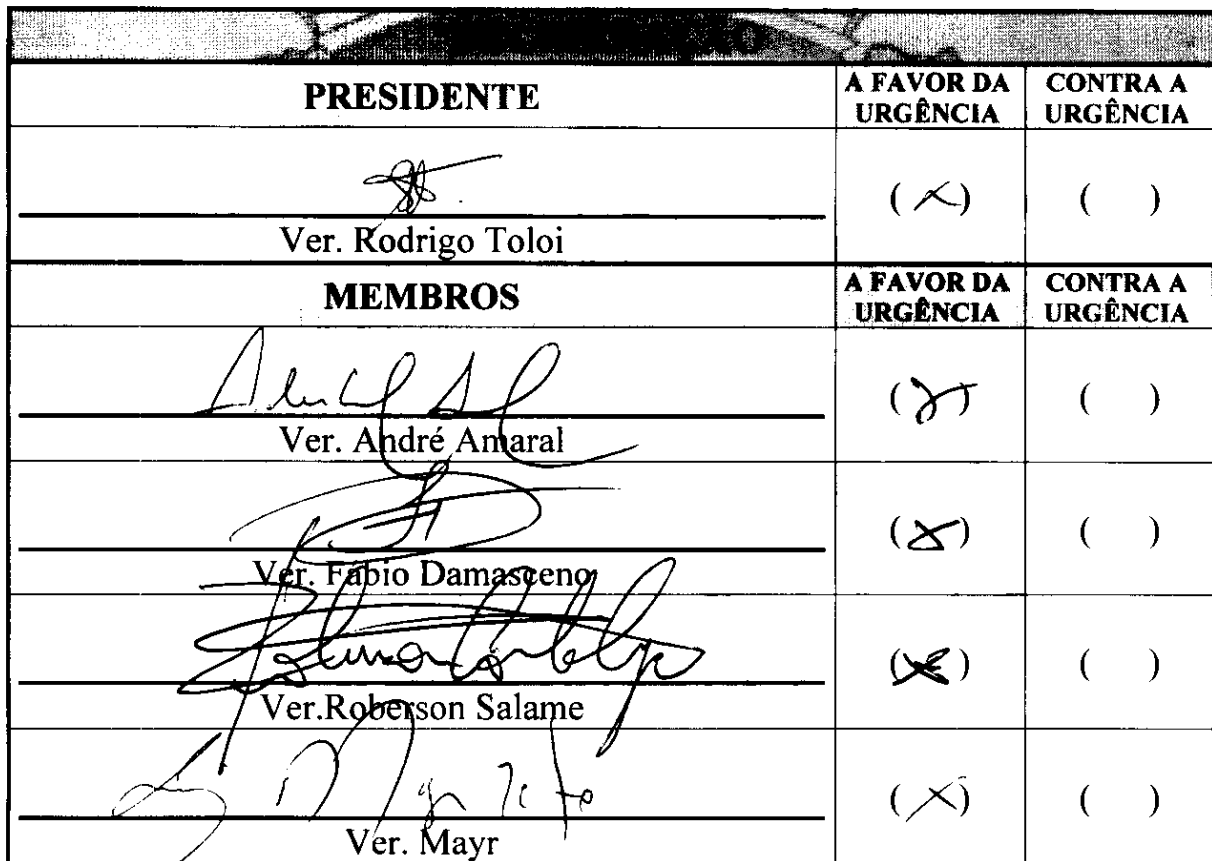 PRESIDENTE
A FAVOR DA URGÊNCIA
CONTRA A URGÊNCIA
(X)
( )
Ver. Rodrigo Toloi
MEMBROS
A FAVOR DA URGÊNCIA
CONTRA A URGÊNCIA
(X)
( )
Ver. André Amaral
(X)
( )
Ver. Fabio Damasceno
(X)
( )
Ver.Roberson Salame
(X)
( )
Ver. Mayr